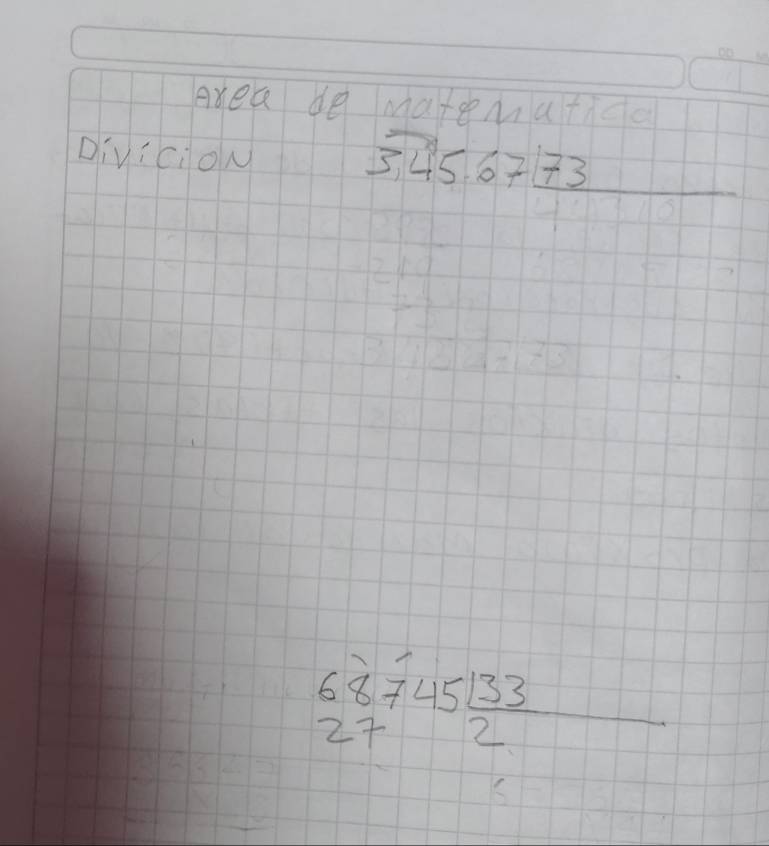 Area de matematica
Division 3,45.67 73
68745 33
27 2